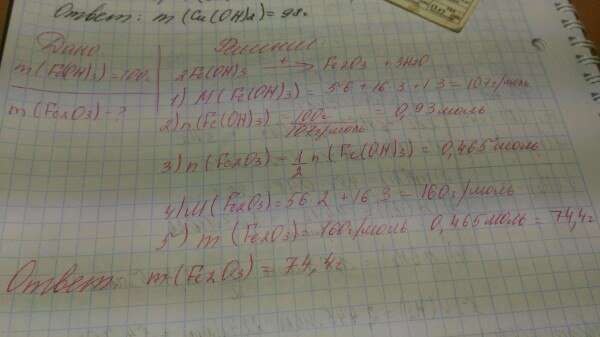 Ответ: m(Cu(OH)2) = 98г
Дано
m(Fe(OH)3) = 100г
m(Fe2O3) - ?
Решение
2Fe(OH)3 t→ Fe2O3 + 3H2O
1) M(Fe(OH)3) = 56 + 16 3 + 1 3 = 107г/моль
2) n(Fe(OH)3) = 100г / 107г/моль = 0,93 моль
3) n(Fe2O3) = 1/2 n(Fe(OH)3) = 0,465 моль
4) M(Fe2O3) = 56 2 + 16 3 = 160г/моль
5) m(Fe2O3) = 160г/моль 0,465 моль = 74,4г
Ответ: m(Fe2O3) = 74,4г